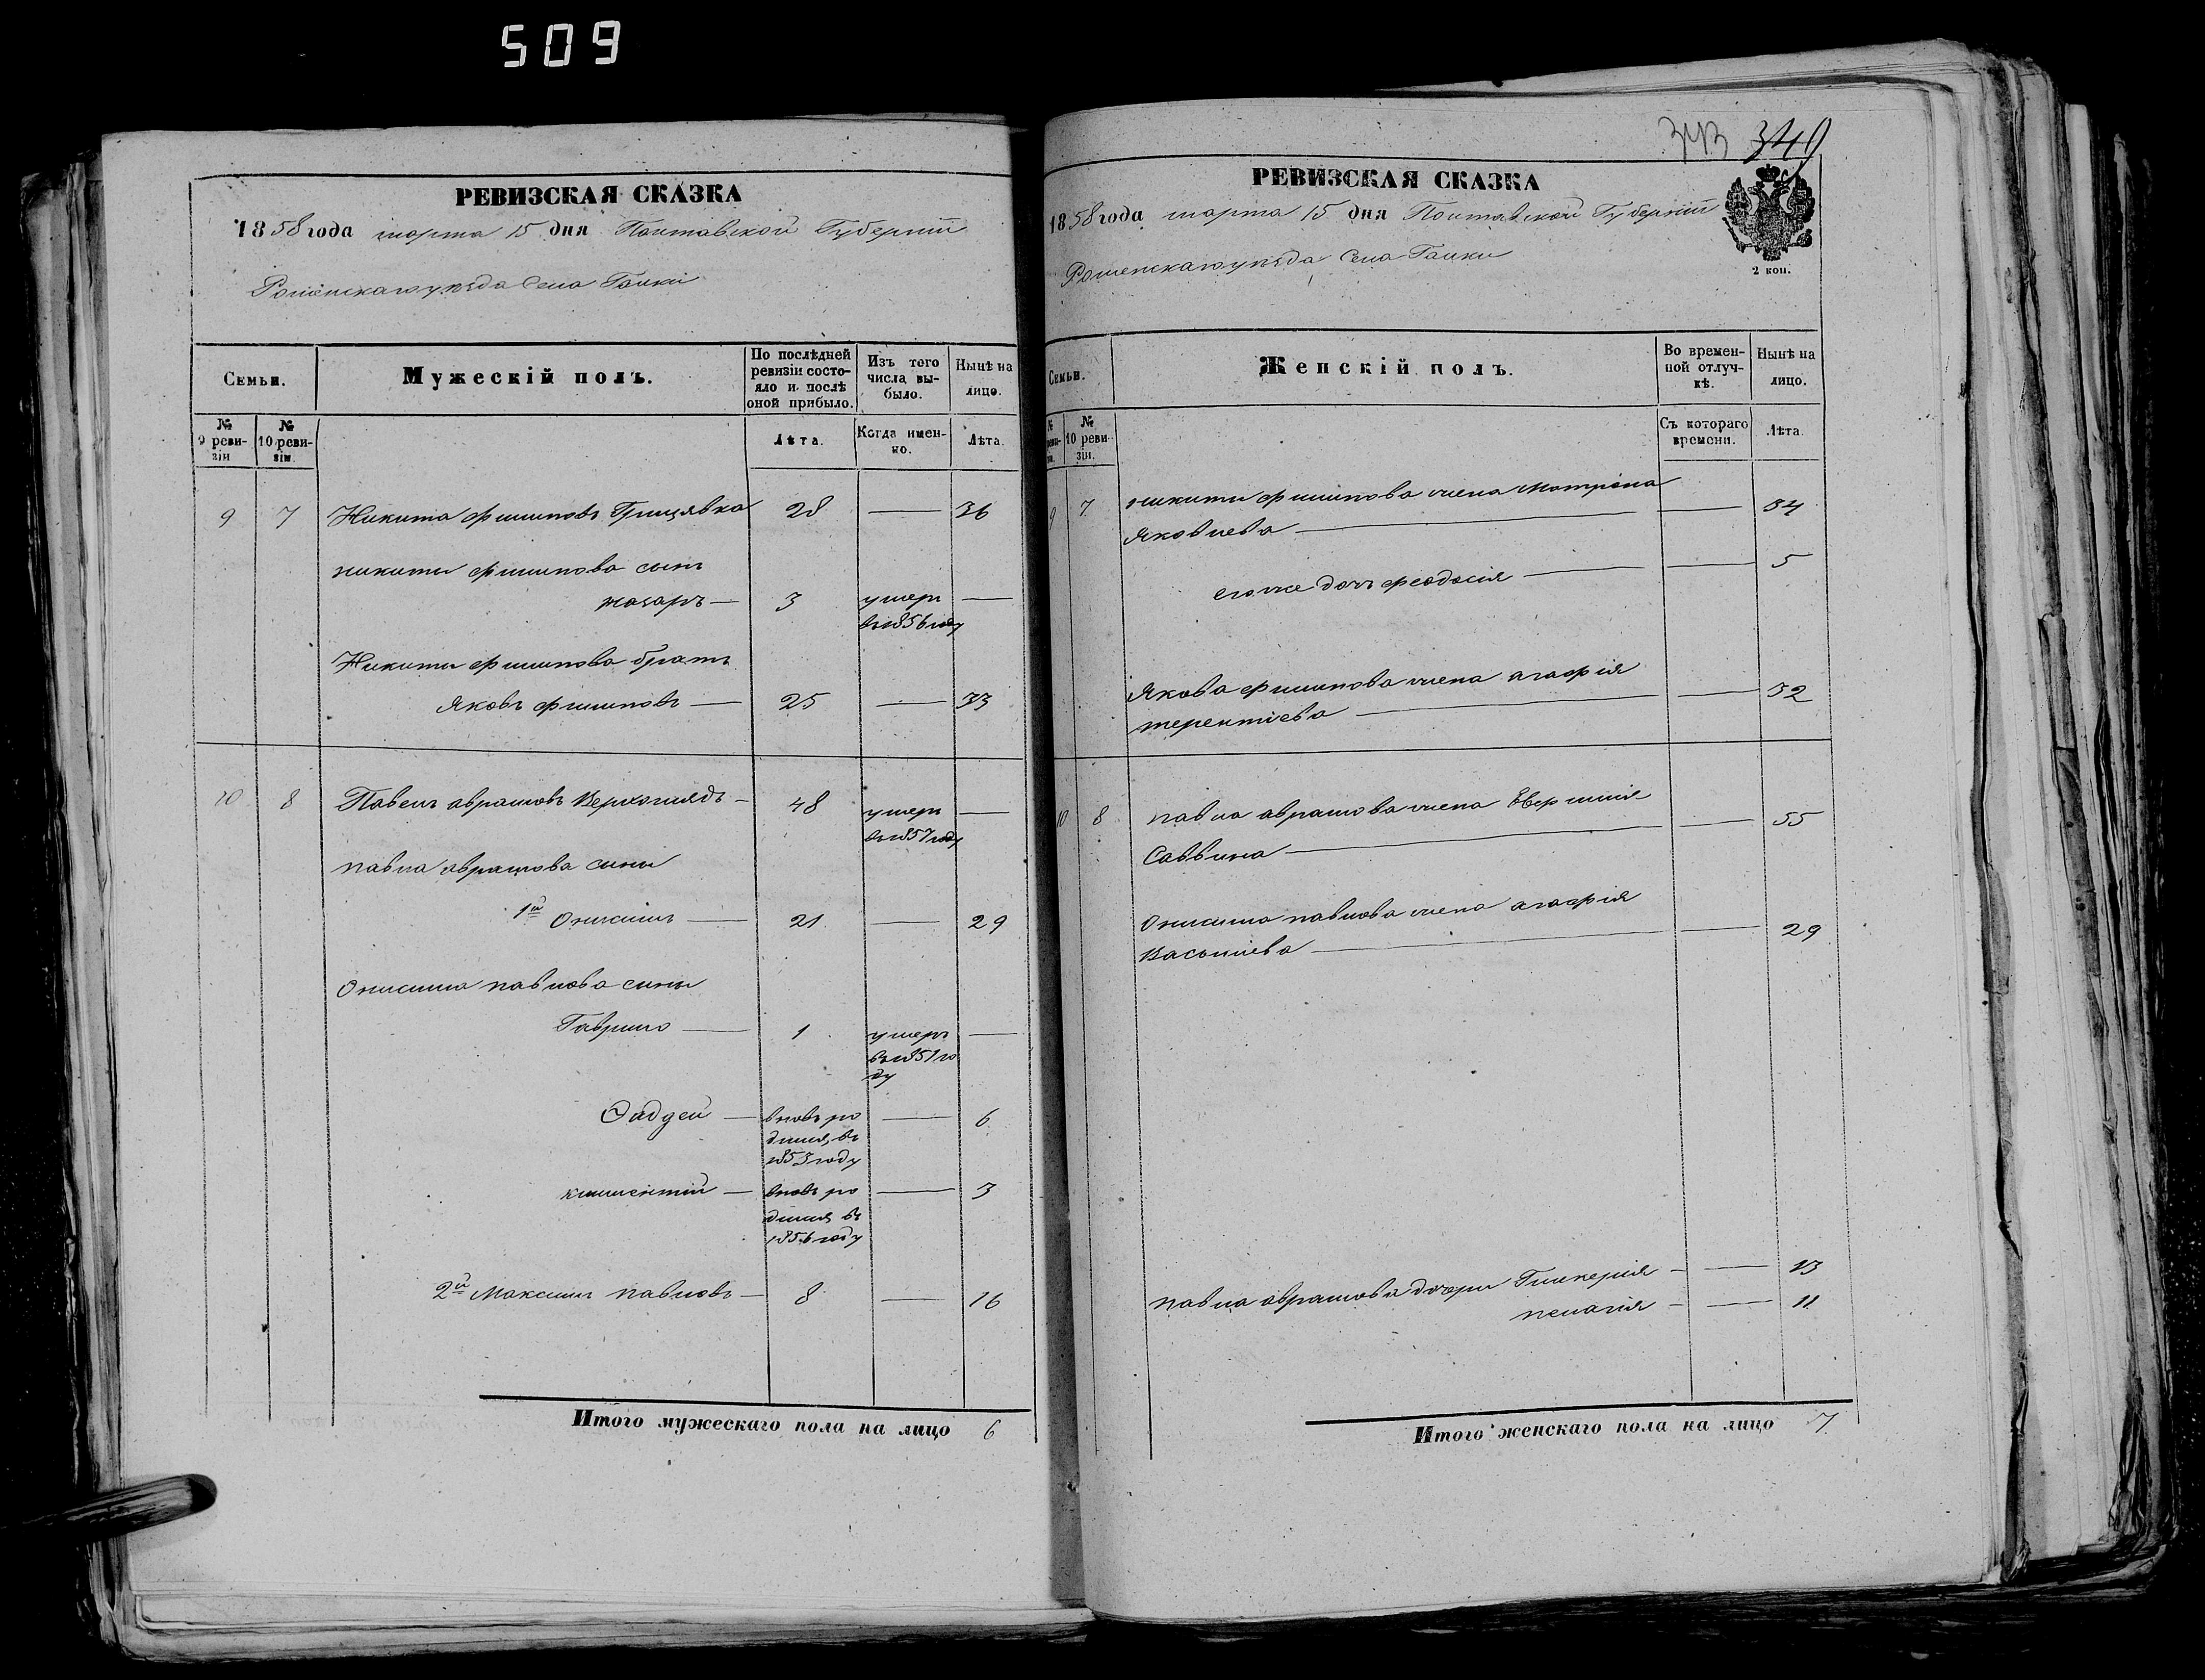 509
РЕВИЗСКАЯ СКАЗКА
1858 года марта 15 дня Полтавской Губерніи
Роменскаго уезда Села Галки
Семьи.
Мужескій полъ.
По послѣдней ревизіи состояло и послѣ оной прибыло.
Изъ того числа выбыло.
Нынѣ на лицо.
№ 9 ревизіи
№ 10 ревизіи.
Лѣта.
Когда именно.
Лѣта.
9 7 Никита Филиповъ Грицявка 28 — 36
Никиты Филипова сынъ
Назаръ — 3 умеръ —
въ 1856 году
Никиты Филипова братъ
Яковъ Филиповъ — 25 — 33
10 8 Павелъ Аврамовъ Верхоглядъ — 48 умеръ —
въ 1857 году
Павла Аврамова сыны
1й Онисимъ — 21 — 29
Онисима Павлова сыны
Гаврило — 1 умеръ —
въ 1851 го
ду
Фаддей — вновь ро — 6
дился въ
1853 году
Климентий — вновь ро — 3
дился въ
1856 году
2й Максимъ Павловъ — 8 — 16
Итого мужескаго пола на лицо 6
343 349
РЕВИЗСКАЯ СКАЗКА
1858 года марта 15 дня Полтавской Губерніи
Роменскаго уезда Села Галки
2 коп.
Семьи.
Женскій полъ.
Во временной отлучкѣ.
Нынѣ на лицо.
№ 10 ревизіи.
Съ котораго времени.
Лѣта.
9 7 Никиты Филипова жена Мотрона
Яковлева — — 34
его же дочь Феодосія — — 5
Якова Филипова жена Агафія
Терентіева — — 32
10 8 Павла Аврамова жена Евфимія
Саввина — — 55
Онисима Павлова жена Агафія
Василіева — — 29
Павла Аврамова дочери Гликерія — — 13
Пелагія — — 11
Итого женскаго пола на лицо 7